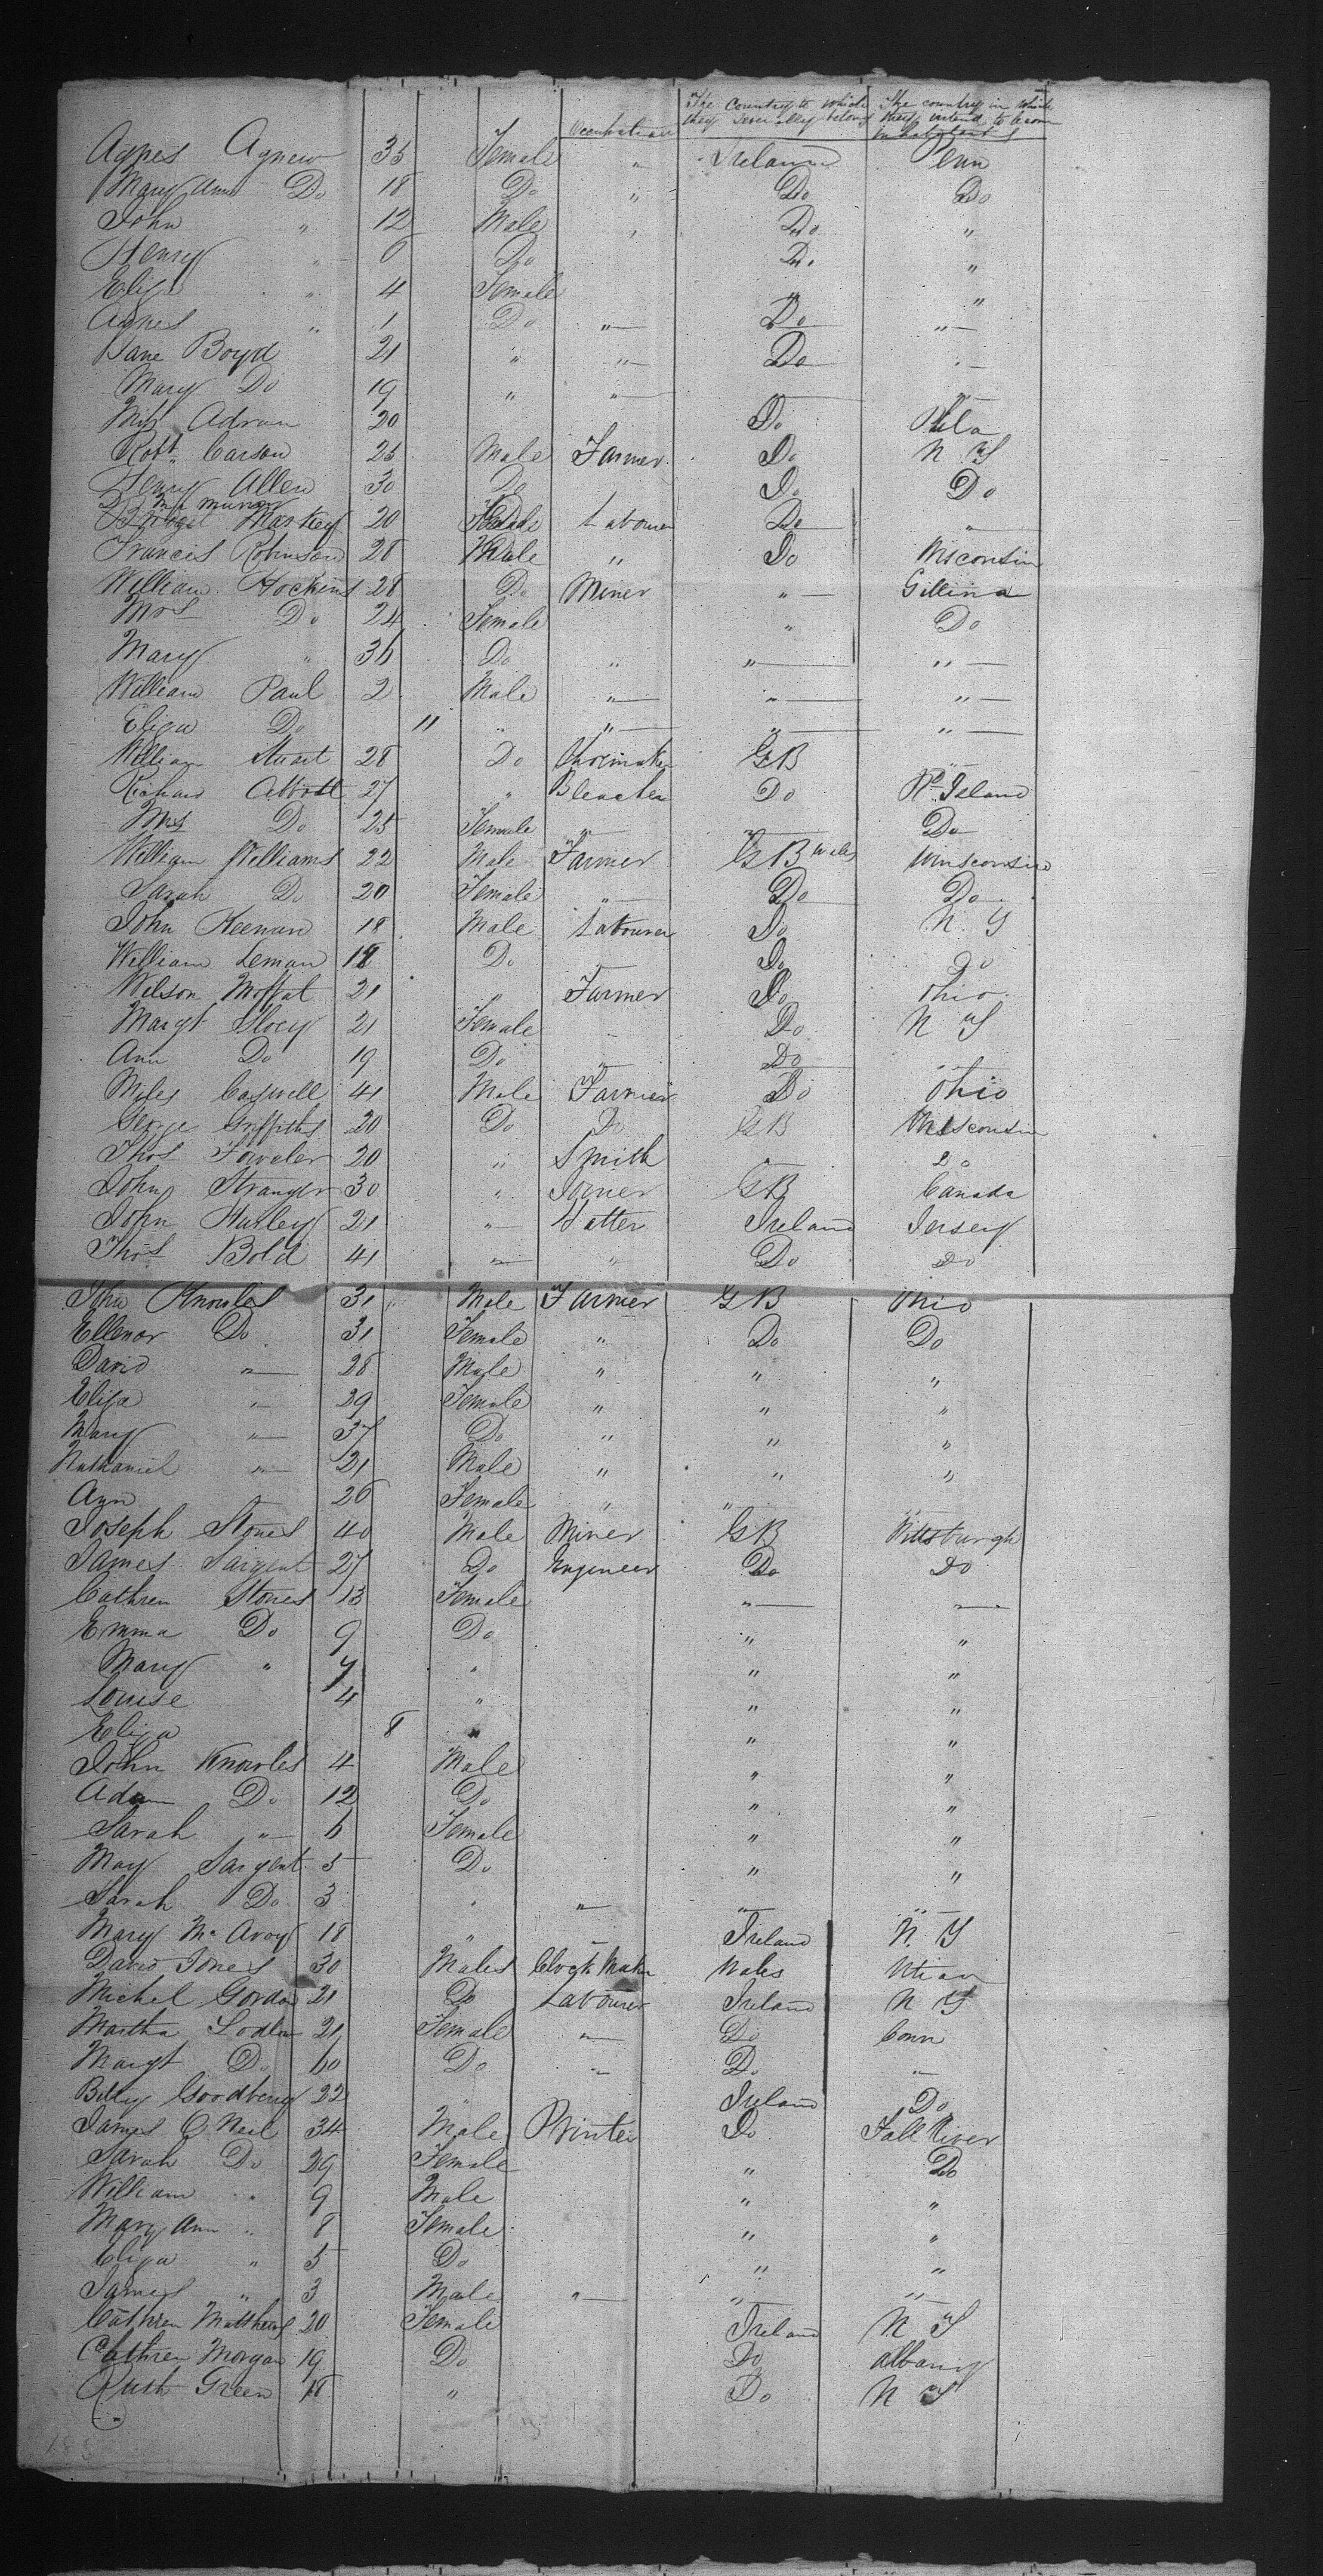 Occupation The Country to which they severally belong The country in which they intend to become inhabitants
Agnes Agnew 35 Female " Ireland Penn
Mary Ann Do 18 Do " Do Do
John " 12 Male " Do "
Henry " 6 Do Do "
Eliza " 4 Female " "
Agnes " 1 Do " Do "
Jane Boyd 21 " " Do "
Mary Do 19 " " "
Miss Adran 20 Do Phila
Robt Carson 25 Male Farmer Do N Y
Henry Allen 30 Do Do Do
Bridget Markey 20 Labourer Do "
Francis Robinson 28 Male " Do Wisconsin
William Hockins 28 Do Miner " Gillina
Mrs Do 24 Female " Do
Mary " 36 Do " " "
William Paul 2 Male " " "
Eliza Do 11 " " " "
William Stuart 28 Do Shoemaker G B "
Richard Abbott 27 " Bleacher Do Rd Island
Mrs Do 25 Female " " Do
William Williams 22 Male Farmer G B Wales Winsconsin
Sarah Do 20 Female " Do Do
John Heenan 18 Male Labourer Do N. Y
William Leman 18 Do Do Do
Wilson Moffat 21 " Farmer Do Ohio
Margt Slocy 21 Female Do N Y
Ann Do 19 Do " Do "
Miles Caswell 41 Male Farmer Do Ohio
George Griffiths 20 Do Do G B Wisconsin
Thos Fowler 20 " Smith " Do
John Stranger 30 " Joiner G B Canada
John Hurley 21 " Hatter Ireland Jersey
Thos Bold 41 " " Do Do
John Knowles 31 " Male Farmer G B Ohio
Ellenor Do 31 Female " Do Do
David " 28 Male " " "
Eliza " 29 Female " " "
Mary " 37 Do " " "
Nathaniel " 21 Male " " "
Ann 26 Female " "
Joseph Stones 40 Male Miner G B Pittsburgh
James Sargent 27 Do Engineer Do Do
Cathren Stones 13 Female " "
Emma Do 9 Do " "
Mary " 7 " " "
Louise 4 " " "
Eliza 8 " " "
John Knowles 4 Male " "
Adam Do 12 Do " "
Sarah " 6 Female " "
May Sargent 5 Do " "
Sarah Do 3 " " " "
Mary Mc Avoy 18 " Ireland N Y
David Jones 30 Males Clock Maker Wales
Michel Gordon 21 Do Labourer Ireland N Y
Martha 21 Female " Do Conn
Margt Do 60 Do " Do "
Betty Goodberry 22 " Ireland Do
James O Neil 34 Male Printer Do Fall River
Sarah Do 29 Female " Do
William " 9 Male " "
Mary Ann " 8 Female " "
Eliza " 5 Do " "
James " 3 Male " " "
Cathren Matthews 20 Female Ireland N Y
Cathren Morgan 19 Do Do Albany
Ruth Green 18 " Do N Y